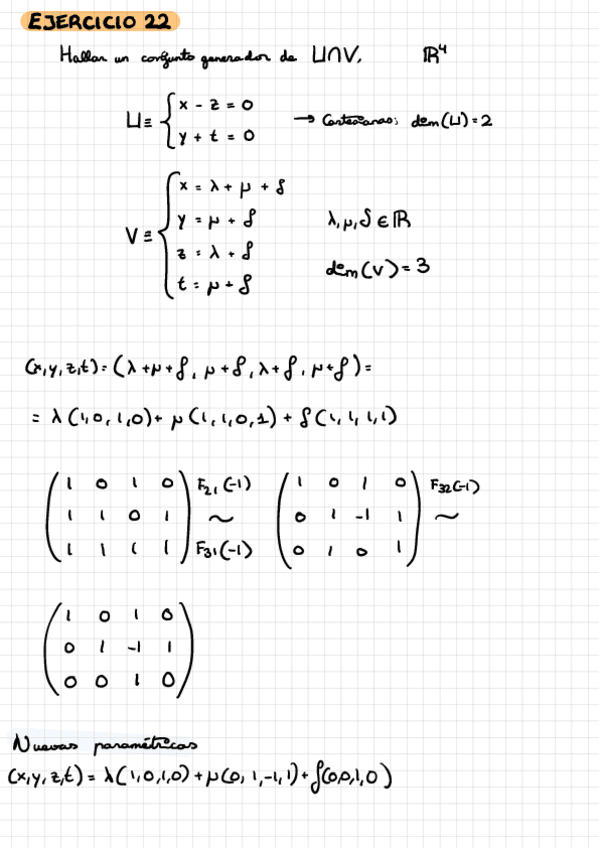 EJERCICIO 22
Hallar un conjunto generador de U∩V. ℝ⁴
U ≡ { x - z = 0
y + t = 0 → Cartesianas; dem(U) = 2
V ≡ { x = λ + μ + δ
y = μ + δ λ, μ, δ ∈ ℝ
z = λ + δ
t = μ + δ dem(V) = 3
(x, y, z, t) = (λ + μ + δ, μ + δ, λ + δ, μ + δ) =
= λ(1, 0, 1, 0) + μ(1, 1, 0, 1) + δ(1, 1, 1, 1)
1 0 1 0 F₂₁(-1) 1 0 1 0 F₃₂(-1)
1 1 0 1 ~ 0 1 -1 1 ~
1 1 1 1 F₃₁(-1) 0 1 0 1
1 0 1 0
0 1 -1 1
0 0 1 0
Nuevas paramétricas
(x, y, z, t) = λ(1, 0, 1, 0) + μ(0, 1, -1, 1) + δ(0, 0, 1, 0)